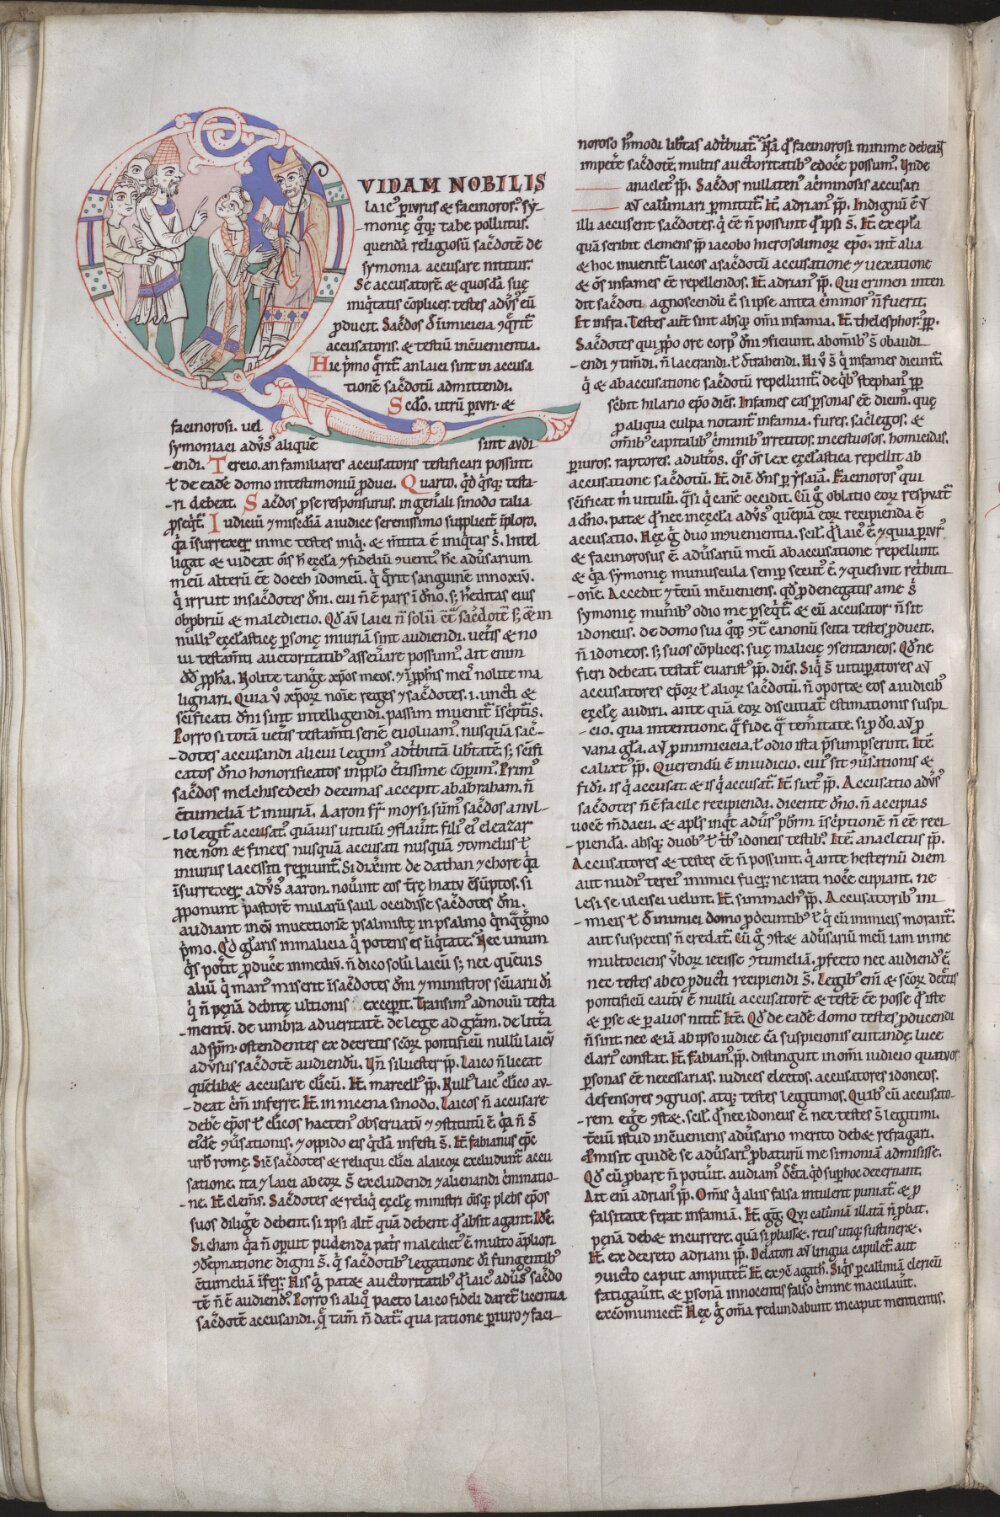 QVIDAM NOBILIS
laic᷒ p̄iurus & facinoros᷒. sẏ-
-monię q̊q; tabe pollutus.
quendā religiosū sac̄dotē de
sẏmonia accusare nititur.
Se accusatorē & quosdā suę
iniq̇tatis c̄oplices. testes adv̄s᷒ eū
p̱ducit. Sac̄dos
accusatoris. & testiū
Hic ṗmo q̄rit᷒ an laici sint in accusa
tionē sac̄dotū admittendi.
Sc̄do. utrū p̱iuri. &
facinorosi. uel
sẏmoniaci adv̄s᷒ aliquē sint audi
-endi. Tercio. an familiares accusatoris testificari possint.
ł de eadē domo intestimoniū p̱duci. Quarto. q̇d q̇sq; testa-
-ri debeat. Sac̄dos p̱ se responsurus. in gen̄ali sinodo talia
p̱seq̇t᷒. Iudiciū ẏ mis̄cdiā a iudice serenissimo supplicit᷒ īploro.
q̇a īsurrexer̄ in me testes iniq̇. & m̄tita ē iniq̇tas s̄. Intel
ligat & uideat
meū alterū eē doech idomeū. q̇ q̄rit sanguinē innoxiū.
q̇ irruit insac̄dotes dn̄i. cui n̄ ē pars ī dn̄o. s; h̄editas eius
obp̱briū & maledictio. Qd̄ aū laici n̄ solū
null᷒ ęcclesiasticę p̱sonę iniuriā sint audiendi. uet̄is & no
ui testam̄ti auctoritatib᷒ asseuare possum᷒. ait enim
dd̄ p̱pha. Nolite tanḡe xp̄os meos. ẏ ī p̱phis meis nolite ma
lignari. Quia v̊ xp̄orū noīe reges ẏ sac̄dotes. i. uncti &
sc̄ificati dn̄i sint intelligendi. passim inuenit᷒
Porro si totā uet̄is testam̄ti seriē euoluam᷒. nusquā sac̄-
-dotes accusandi alicui legim᷒ adt̄butā lib̄tatē. s; sc̄ifi
catos dn̄o honorificatos in pp̄lo
sac̄dos melchisedech decimas accepit ab abraham. n̄
c̄tumeliā ł iniuriā. Aaron fr̄ moysi. sūm᷒ sac̄dos a nul-
-lo legit᷒ accusat᷒. quāuis uitulū ɔflauit. filii ei᷒ eleazar
nec non & finees nusquā accusati nusquā ɔtumeliis ł
iniuriis lacessiti rep̱iunt᷒. Si dix̄int de dathan ẏ chore q̇a
īsurrexer̄ adv̄s᷒ aaron. nou̇int eos
p̱ponunt pastorē mularū saul occidisse sac̄dotes dn̄i.
audiant inuectionē psalmistę in psalmo q̇nq̇gg̊mo
ṗmo. Qd̄ gl̄aris in malicia q̇ potens es
q̇s pot̄it p̱duce in mediū. n̄ dico solū laicū s; nec quēuis
aliū q̇ man᷒ miserit īsac̄dotes dn̄i ẏ ministros
q̇ n̄ pęnā debitę ultionis excep̱it. Transim᷒ ad nouū testa
-mentū. de umbra ad ueritatē. de lege ad gr̄am. de litt̄a
ad sp̄m. ostendentes ex decretis sc̄orū pontificū nullū laicū
adv̄sus sac̄dotē audiendū. Vn̄ siluester pp̄. Laico n̄ liceat
quēlibet accusare cl̄icū. It̄ marcell᷒ pp̄. Null᷒ laic᷒ cl̄ico au-
-deat c̄m̄ inferre. It̄ in nicena sinodo. Laicos n̄ accusare
deb̄e ep̄os ł cl̄icos hacten᷒ obseruatū ẏ ɔstitutū ē. q̇a n̄ s̄
eiusdē ɔuersationis. ẏ oppido eis q̇dā infesti s̄. It̄ fabianus ep̄c
urb᷒ romę. Sic̄ sac̄dotes & reliqui cl̄ici a laicorū excludunt᷒ accu
satione. ita ẏ laici ab eorū s̄ excludendi ẏ alienandi c̄minatio-
ne. It̄ clem̄s. Sac̄dotes & reliq̇ ęccl̄ę ministri om̄sq; plebs ep̄os
suos dilig̊e debent. si ipsi alit᷒ quā debent q̇ absit agant. Idē.
Si cham q̇a n̄ op̱uit pudenda pat̄s maledict᷒ ē. multo āpliori
ɔdēpnatione digni s̄. q̇ sac̄dotib᷒ legatione dī fungentib᷒
c̄tumeliā īfer̄. His ḡ patet auctoritatib᷒ q̇ laic᷒ adv̄s᷒ sac̄do
tē n̄ ē audiend᷒. Porro si aliq̊ pacto laico fideli daret᷒ licentia
sac̄dotē accusandi. q̄ tam̄ n̄ dat᷒. qua ratione p̱iuro ẏ faci-
noroso h᷒modi lib̄tas adt̄buat᷒. Nā q̇ facinorosi minime debeant
impet̄e sac̄dotē multis auctoritatib᷒ edoc̄e possum᷒. Vnde
anaclet᷒ pp̄. Sac̄dos nullaten᷒ a c̄minosis accusari
aut calūniari p̱mittit᷒. It̄ adrian᷒ pp̄. Indignū ē ut
illi accusent sac̄dotes. q̇ eē n̄ possunt q̇ ipsi s̄. It̄ ex epl̄a
quā scribit clemens pp̄ iacobo hierosolimorū ep̄o. int̄ alia
& hoc inuenit᷒ laicos a sac̄dotū accusatione ẏ uexatione
& om̄s infames eē repellendos. It̄ adrian᷒ pp̄. Qui crimen inten
dit sac̄doti. agnoscendū ē si ipse antea c̄minos᷒ n̄ fuerit.
Et infra. Testes aut̄ sint absq; om̄i infamia. It̄ thelesphor᷒ pp̄.
Sac̄dotes qui pp̱o ore corp᷒ dn̄i ɔficiunt. ab om̄ib᷒ s̄ obaudi
-endi ẏ tim̄di. n̄ lacerandi. ł det̄hendi. Hi v̊ s̄ q̇ infames dicunt᷒.
q̇ & ab accusatione sac̄dotū repellunt᷒. de q̇b᷒ stephan᷒ pp̄
sc̄bit hilario ep̄o dic̄s. Infames eas p̱sonas eē dicim᷒. quę
p̱ aliqua culpa notant᷒ infamia. fures. sac̄legos. &
om̄ib᷒ capitalib᷒ c̄minib᷒ irretitos. incestuosos. homicidas.
p̱iuros. raptores. adult̄os. q̇s om̄s lex ęccl̄astica repellit ab
accusatione sac̄dotū. It̄ dic̄ dn̄s p̱ ẏsaiā. Facinoros᷒ qui
sc̄ificat m̄ uitulū. q̇si q̇ canē occidit. Cū ḡ oblatio eorū respuat᷒
a dn̄o. patet q̇ nec in ęccl̄a adv̄s᷒ quēpiā eorū recipienda ē
accusatio. Nec ḡ duo incuenientia. scil. q̇ laic᷒ ē. ẏ quia p̱iur᷒
& facinorosus ē. adv̄sariū meū ab accusatione repellunt.
& q̇a sẏmonię munuscula semp̱ secut᷒ ē. ẏ quesiuit ret̄buti
-onē. Accedit ẏ t̄ciū inc̄ueniens. qd̄ p̱ denegatis a me s̄
sẏmonię mun̄ib᷒ odio me p̱seq̇t᷒. & eū accusator n̄ sit
idoneus. de domo sua q̊q; ɔt᷒ canonū scita testes p̱ducit.
n̄ idoneos. s; suos c̄oplices. suę malicię ɔsentaneos. Qd̄ ne
fieri debeat. testat᷒ euarist᷒ pp̄. dic̄s. Siq̇ s̄ uitup̱atores aut
accusatores ep̄orū ł aliorū sac̄dotū. n̄ oportet eos a iudicib᷒
ęccl̄ę audiri. ante quā eorū discutiat᷒ estimationis suspi
-cio. qua intentione. q̄ fide. q̄ tem̄itate. si p̱ dō. aut p̱
uana gl̄a. aut p̱ inimicicia. ł odio ista p̱sumpserint. Itē
calixt᷒ pp̄. Querendū ē in iudicio. cui᷒ sit ɔuersationis &
fidi. is q̇ accusat. & is q̇ accusat᷒. It̄ sixt᷒ pp̄. Accusatio adv̄s᷒
sac̄dotes n̄ ē facile recipienda. dicente dn̄o. n̄ accipias
uocē m̄dacii. & apl̄s inq̇t adv̄s᷒ pb̄rm īsc̄ptionē n̄ eē reci
-pienda. absq; duob᷒ ł t̄b᷒ idoneis testib᷒. Itē anacletus pp̄.
Accusatores & testes eē n̄ possunt. q̇ ante hesternū diem
aut nudi᷒ terci᷒ inimici fuer̄. ne irati noc̄e cupiant. ne
lesi se ulcisci uelint. It̄ simmach᷒ pp̄. Accusatorib᷒ ini
-micis ł d̄ inimici domo p̱deuntib᷒ ł q̇ cū inimicis morant᷒.
aut suspectis n̄ credat᷒. Cū ḡ ɔstet adv̄sariū meū iam in me
multociens v̄borū iecisse ɔtumeliā. p̱fecto nec audiend᷒ ē.
nec testes ab eo p̱ducti recipiendi s̄. Legib᷒ em̄ & sc̄orū dec̄tis
pontificū cautū ē nullū accusatorē & testē eē posse q̇ iste
& p̱ se & p̱ alios nitit᷒. Itē. Qd̄ de eadē domo testes p̱ducendi
n̄ sint. nec & iā ab ipso iudice c̄a suspicionis euitandę. luce
clari᷒ constat. It̄ Fabian᷒ pp̄. distinguit in om̄i iudicio quatuor
p̱sonas eē necessarias. iudices electos. accusatores idoneos.
defensores ɔgruos. atq; testes legitimos. Quib᷒ cū accusato-
-rem eḡe ɔstet. scil. q̇ nec idoneus ē. nec testes s̄ legitimi.
t̄ciū istud inc̄ueniens adv̄sario merito debet refragari.
p̄misit quidē se adv̄sari᷒ p̱baturū me simoniā admisisse.
Qd̄ cū p̱bare n̄ potuit. audiam᷒ dec̄ta. q̇d sup̱ hoc decernant.
Ait em̄ adrian᷒ pp̄. Om̄is q̇ aliis falsa intulerit puniat᷒. & p̱
falsitate ferat infamiā. It̄ gg̃. Qui calūniā illatā n̄ p̱bat.
pęnā debet incurrere. quā si p̱basset. reus utiq; sustineret.
It̄ ex decreto adriani pp̄. Delatori aut lingua capulet᷒. aut
ɔuicto caput amputet᷒. It̄ ex ɔc̄ agath. Siq̇s p̱ calūniā clericū
fatigau̇it. & p̱sonā innocentis falso c̄mine maculau̇it.
excōmunicet᷒. Nec ḡ om̄a redundabunt in caput mentientis.